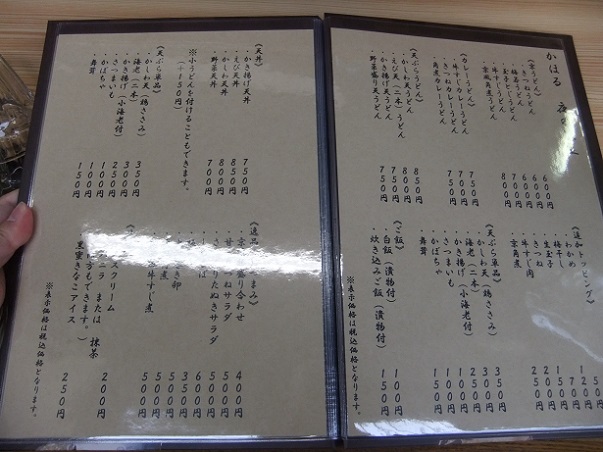 かほる 夜
《京うどん》
・きつねうどん 600円
うどん 600円
・玉子とじうどん 600円
・牛すじうどん 700円
・京風角煮うどん 800円
《カレーうどん》
・きつねカレーうどん
・牛すじカレーうどん 700円
・角煮カレーうどん 750円
《天ぷらうどん》
・えび天(二本)うどん 850円
・かしわ天うどん 750円
・野菜盛り天うどん 750円
《追加トッピング》
・わかめ
・梅干し
・生玉子
・きつね
・牛すじ肉 200円
・京角煮 250円
《天ぷら単品》
・かしわ天(鶏ささみ) 350円
・海老(二本) 300円
・かき揚げ(小海老付) 250円
・さつまいも 100円
・かぼちゃ 100円
・舞茸 150円
《ご飯》
・白飯(漬物付) 100円
・炊き込みご飯(漬物付) 150円
※表示価格は税込価格となります。
《天丼》
・かき揚げ天丼 750円
・えび天丼 850円
・かしわ天丼 800円
・野菜天丼 700円
※小うどんを付けることもできます。
(+150円)
《天ぷら単品》
・かしわ天(鶏ささみ) 350円
・海老(二本) 300円
・かき揚げ(小海老付) 250円
・さつまいも 100円
・かぼちゃ 100円
・舞茸 150円
《逸品 つまみ》
盛り合わせ 400円
ねサラダ 500円
たぬきサラダ 500円
ば 600円
き卵 350円
煮 500円
牛すじ煮 500円
スクリーム 200円
ニラ または 抹茶
できます。)
黒蜜きなこアイス 250円
※表示価格は税込価格となります。